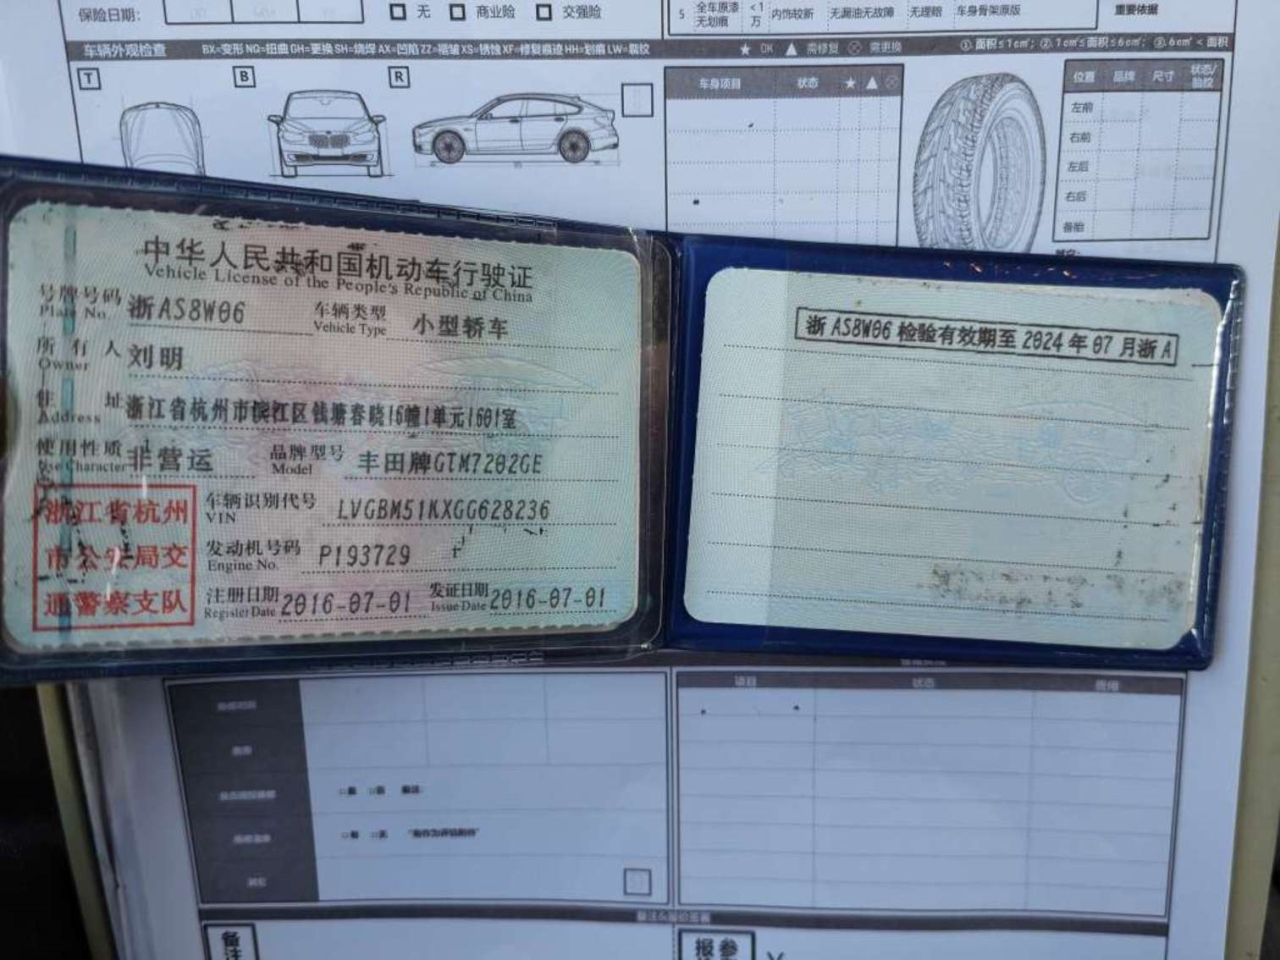 保险日期:
无 商业险 交强险
5 全车原漆无划痕 <1万 内饰较新 无漏油无故障 无理赔 车身骨架原版 重要依据
车辆外观检查 BX=变形 NQ=扭曲 GH=更换 SH=烧焊 AX=凹陷 ZZ=褶皱 XS=锈蚀 XF=修复痕迹 HH=划痕 LW=裂纹 ★ OK ▲ 需修复 ⊗ 需更换 ①.面积≤1c㎡; ②.1c㎡≤面积≤6c㎡; ③.6c㎡<面积
T B R
车身项目 状态 ★ ▲ ⊗
位置 品牌 尺寸 状态/胎纹
左前
右前
左后
右后
备胎
中华人民共和国机动车行驶证
Vehicle License of the People's Republic of China
号牌号码 浙AS8W06 车辆类型 小型轿车
Plate No. Vehicle Type
所有人 刘明
Owner
住址 浙江省杭州市滨江区钱塘春晓16幢1单元1601室
Address
使用性质 非营运 品牌型号 丰田牌GTM7202GE
Use Character Model
浙江省杭州
市公安局交
通警察支队
车辆识别代号 LVGBM51KXGG628236
VIN
发动机号码 P193729
Engine No.
注册日期 2016-07-01 发证日期 2016-07-01
Register Date Issue Date
浙AS8W06检验有效期至2024年07月浙A
项目 状态 费用
备注
报参